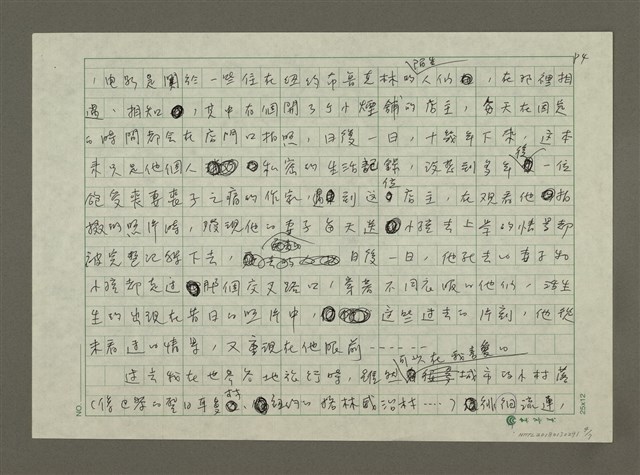 P4
，電影是關於一些住在紐約布魯克林的陌生人們，在那裡相
遇、相知，其中有個開了ㄅ小煙舖的店主，每天在固定
的時間都會在店門口拍照，日復一日，十幾年下來，這本
來只是他個人私密的生活記錄，沒想到多年後一位
飽受喪妻喪子之痛的作家到這位店主，在觀看他拍
攝的照片時，發現他的妻子每天送小孩去上學的情景都
被完整記錄下去，日復一日，他死去的妻子和
小孩都走過那個交叉路口，穿著不同衣服的他們，活生
生的出現在昔日的照片中，這些過去的片刻，他從
未看過的情景，又重現在他眼前------
過去我在世界各地旅行時，雖然可以在我喜愛的城市的小村落
（像巴黎的聖日耳曼村、紐約的格林威治村‥‥）徘徊流連，
NO
25x12